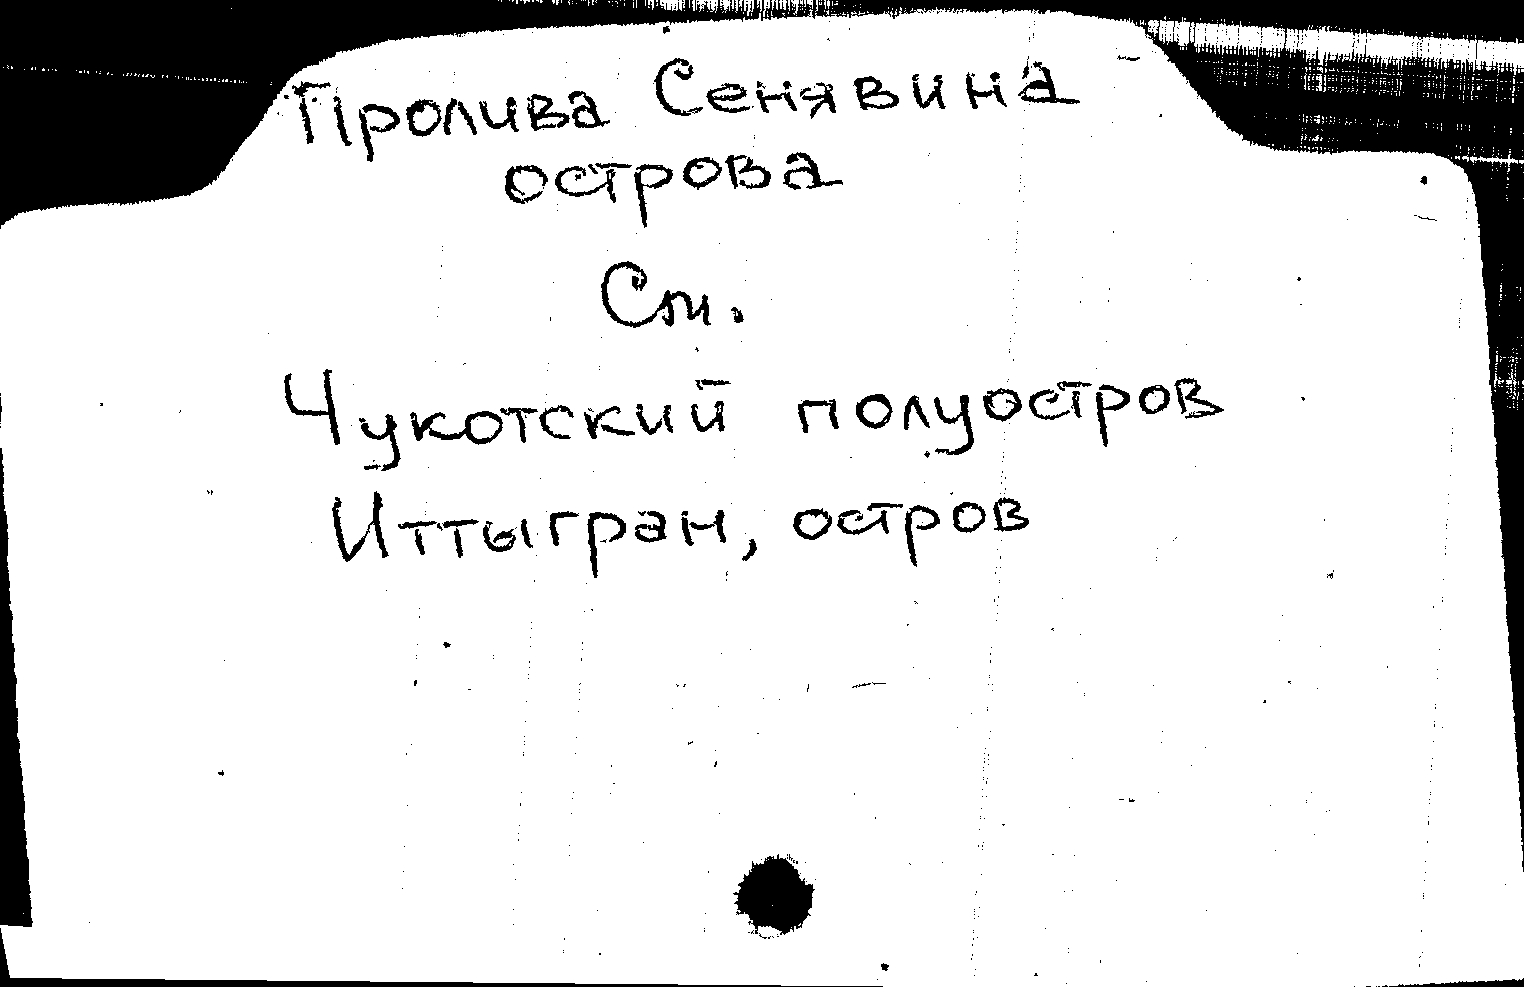 Пролива Сенявина
острова
См.
Чукотский полуостров
Иттыгран, остров